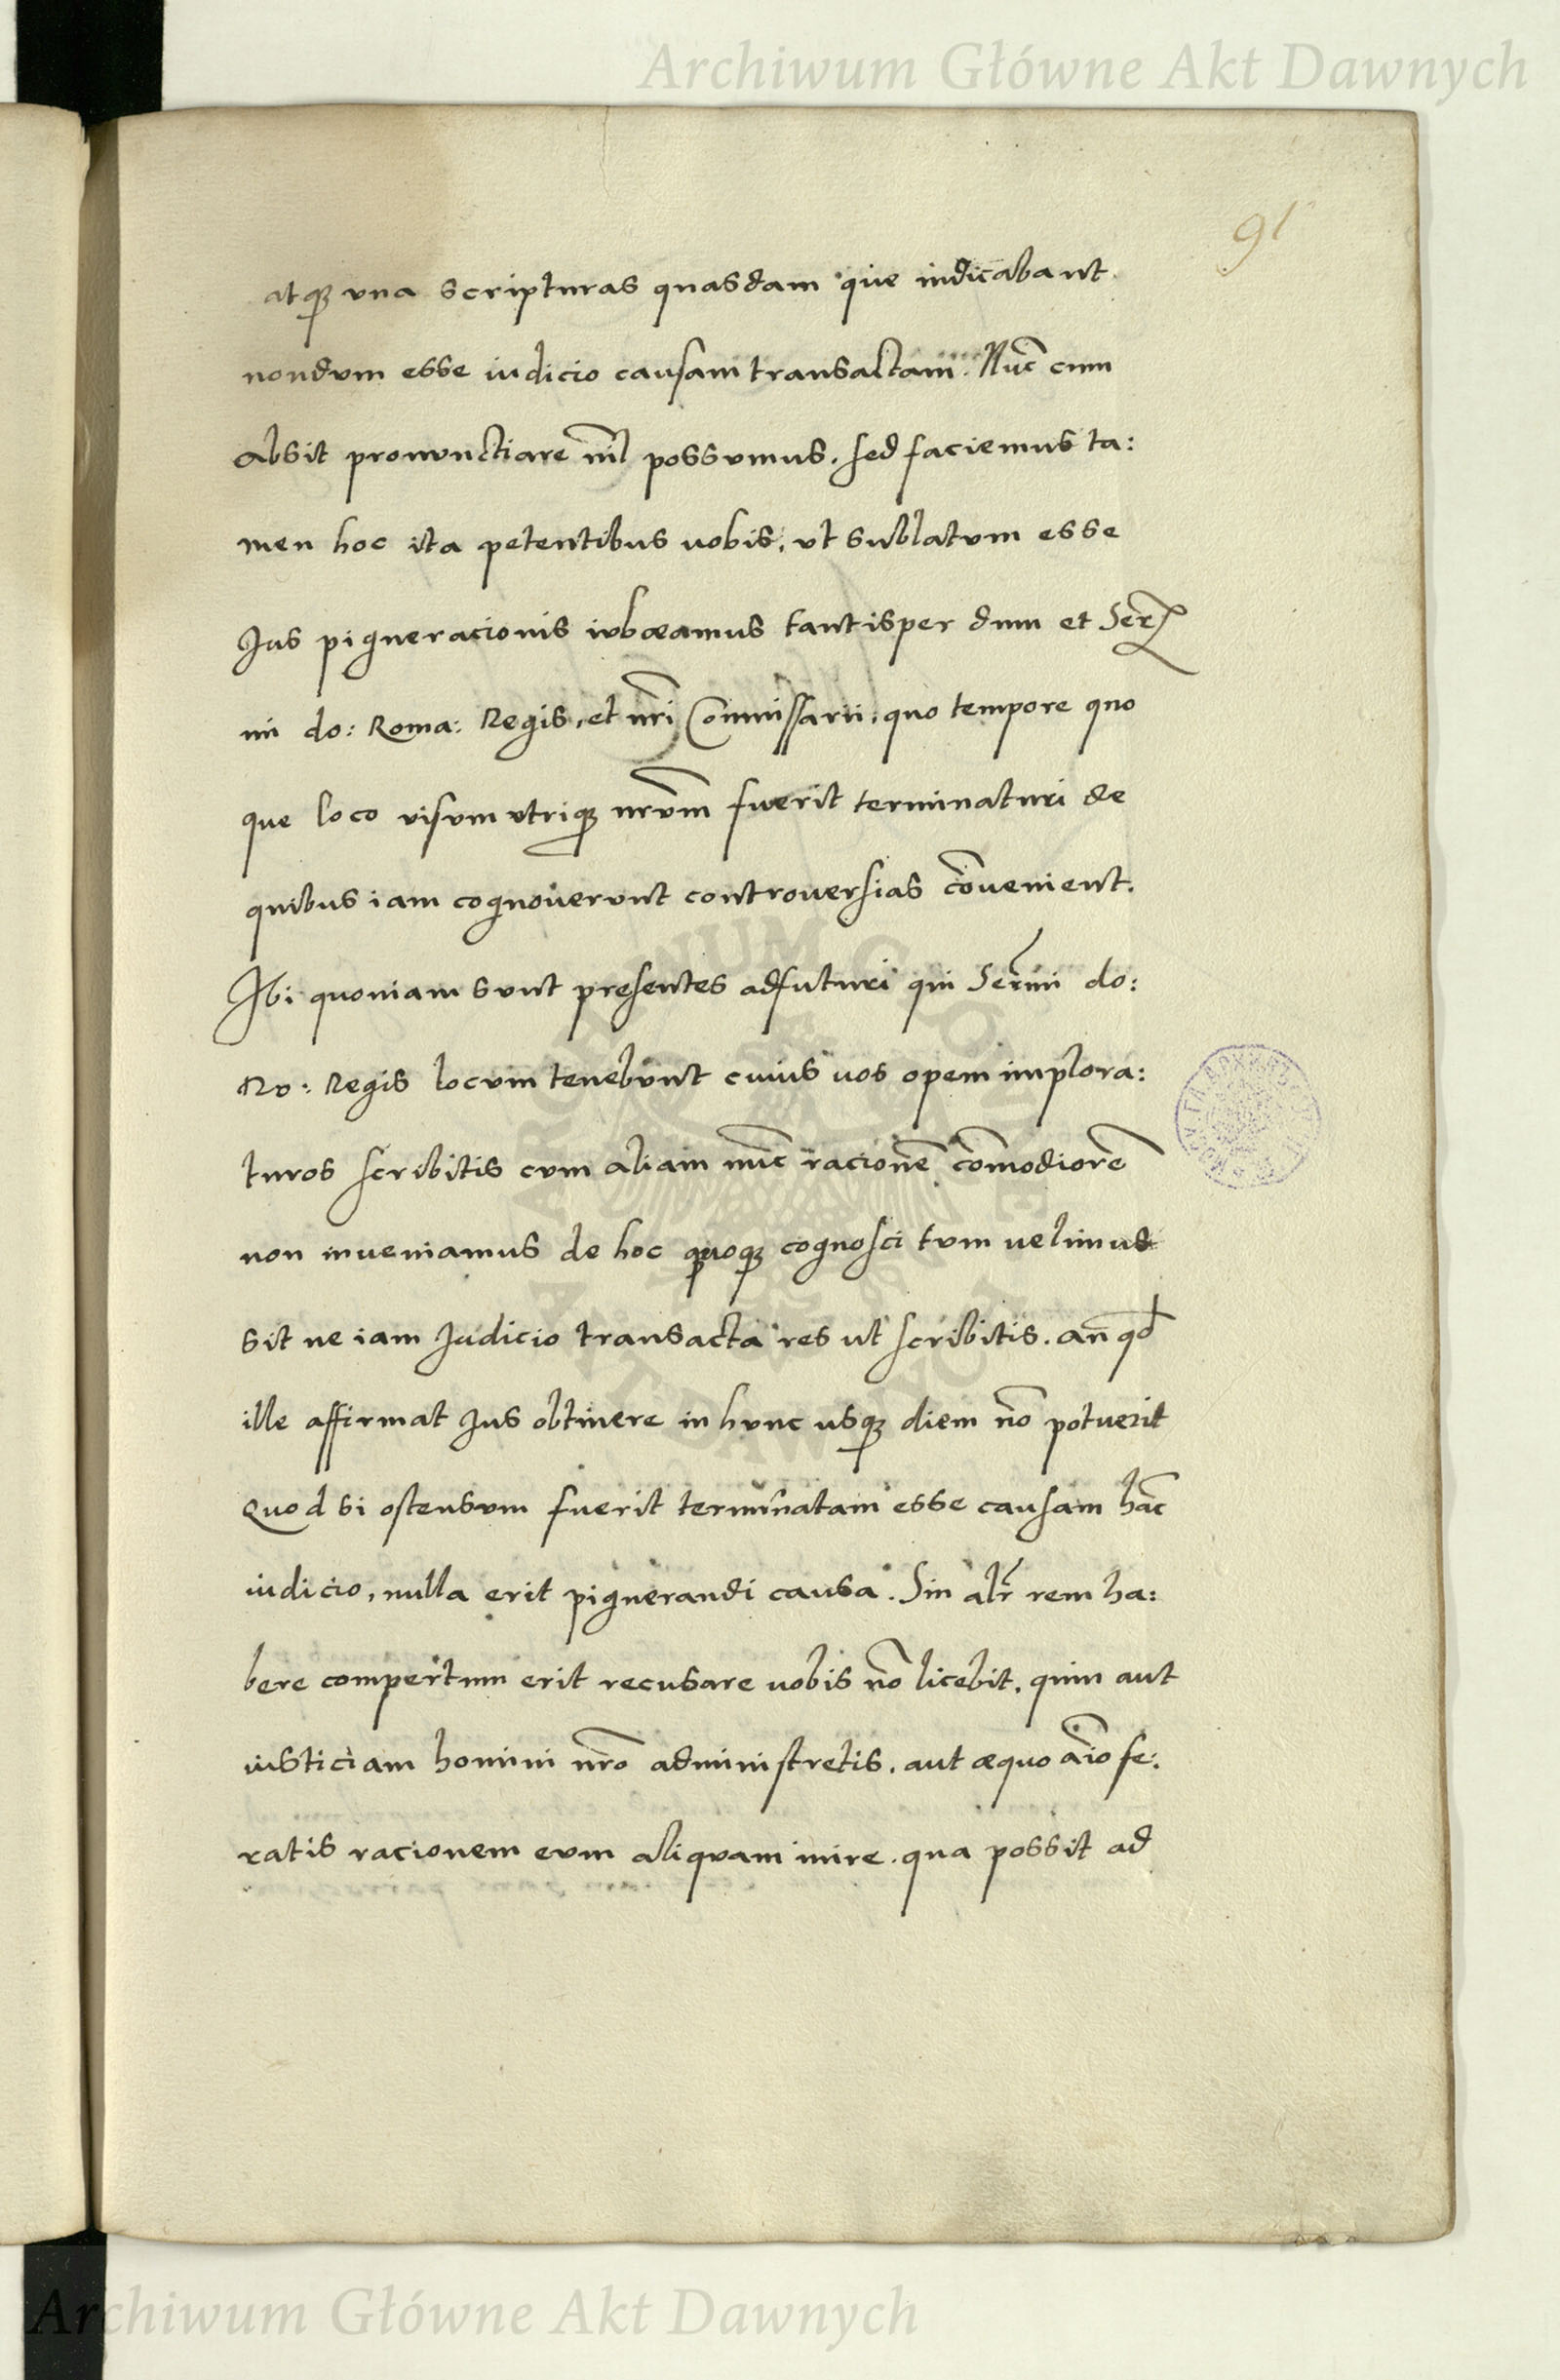 Archiwum Główne Akt Dawnych
91
atq̃ vna scripturas quasdam que indicabant
nondvm esse iudicio causam transactam. Nuc̃ cum
absit pronvnctiare nil̃ possvmus. sed faciemus ta:
men hoc ita petentibus uobis, vt sublatvm esse
Jus pigneracionis ivbæamus tantisper dum et Ser̃
mi do: Roma: Regis, et nr̃i Commissarii, quo tempore quo
que loco visvm vtriq̃ nr̃vm fuerit terminaturi de
quibus iam cognouervnt controuersias cõuenient.
Ibi quoniam svnt presentes adfuturi qui Ser̃mi do:
Ro: Regis locvm tenebvnt cuius uos opem implora:
turos scribitis cvm aliam nuc̃ racionẽ cõmodiorẽ
non inueniamus de hoc quoq̃ cognosci tvm uelimus
sit ne iam Judicio transacta res ut scribitis. an qđ
ille affirmat Jus obtinere in hvnc usq̃ diem nõ potuerit
Quod si ostensvm fuerit terminatam esse causam hãc
iudicio, nulla erit pignerandi causa. Sin alr̃ rem ha:
bere compertum erit recusare uobis nõ licebit, quin aut
iusticiam homini nr̃o administretis, aut æquo aĩo fe:
ratis racionem evm aliqvam inire. qua possit ad
ARCHIWUM GŁÓWNE
AKT DAWNYCH
Archiwum Główne Akt Dawnych